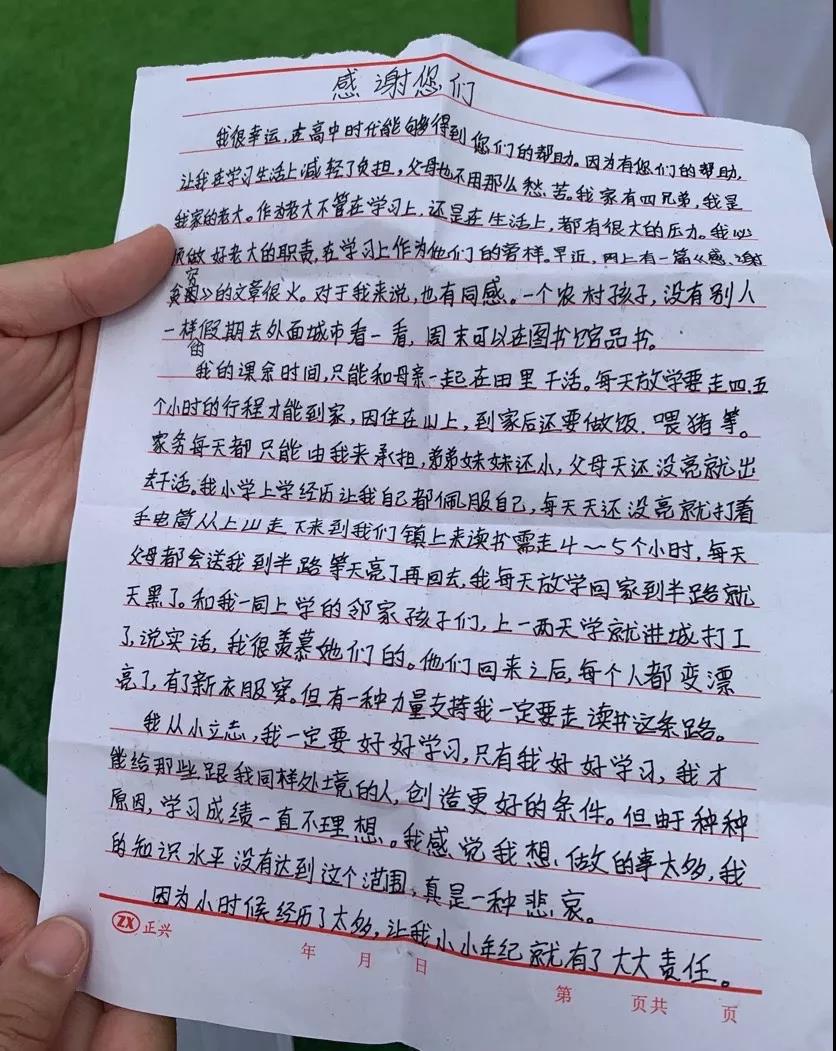 感谢您们
我很幸运,在高中时代能够得到您们的帮助。因为有您们的帮助,
让我在学习生活上减轻了负担,父母也不用那么愁苦。我家有四兄弟,我是
我家的老大。作为老大不管在学习上,还是在生活上,都有很大的压力。我必
须做好老大的职责,在学习上作为他们的榜样。早近,网上有一篇《感谢
贫穷》的文章很火。对于我来说,也有同感。一个农村孩子,没有别人
一样假期去外面城市看一看,周末可以在图书馆品书。
由
我的课余时间,只能和母亲一起在田里干活。每天放学要走四、五
个小时的行程才能到家,因住在山上,到家后还要做饭、喂猪等。
家务每天都只能由我来承担,弟弟妹妹还小,父母天还没亮就出
去干活。我小学上学经历让我自己都佩服自己,每天天还没亮就打着
手电筒从上山走下来到我们镇上来读书需走4~5个小时,每天
父母都会送我到半路等天亮了再回去,我每天放学回家到半路就
天黑了。和我一同上学的邻家孩子们,上一两天学就进城打工
了,说实话,我很羡慕她们的。他们回来之后,每个人都变漂
亮了,有了新衣服穿。但有一种力量支持我一定要走读书这条路。
我从小立志,我一定要好好学习,只有我好好学习,我才
能给那些跟我同样处境的人,创造更好的条件。但由于种种
原因,学习成绩一直不理想。我感觉我想、做的事太多,我
的知识水平没有达到这个范围,真是一种悲哀。
因为小时候经历了太多,让我小小年纪就有了大大责任。
ZX 正兴
年 月 日
第 页共 页